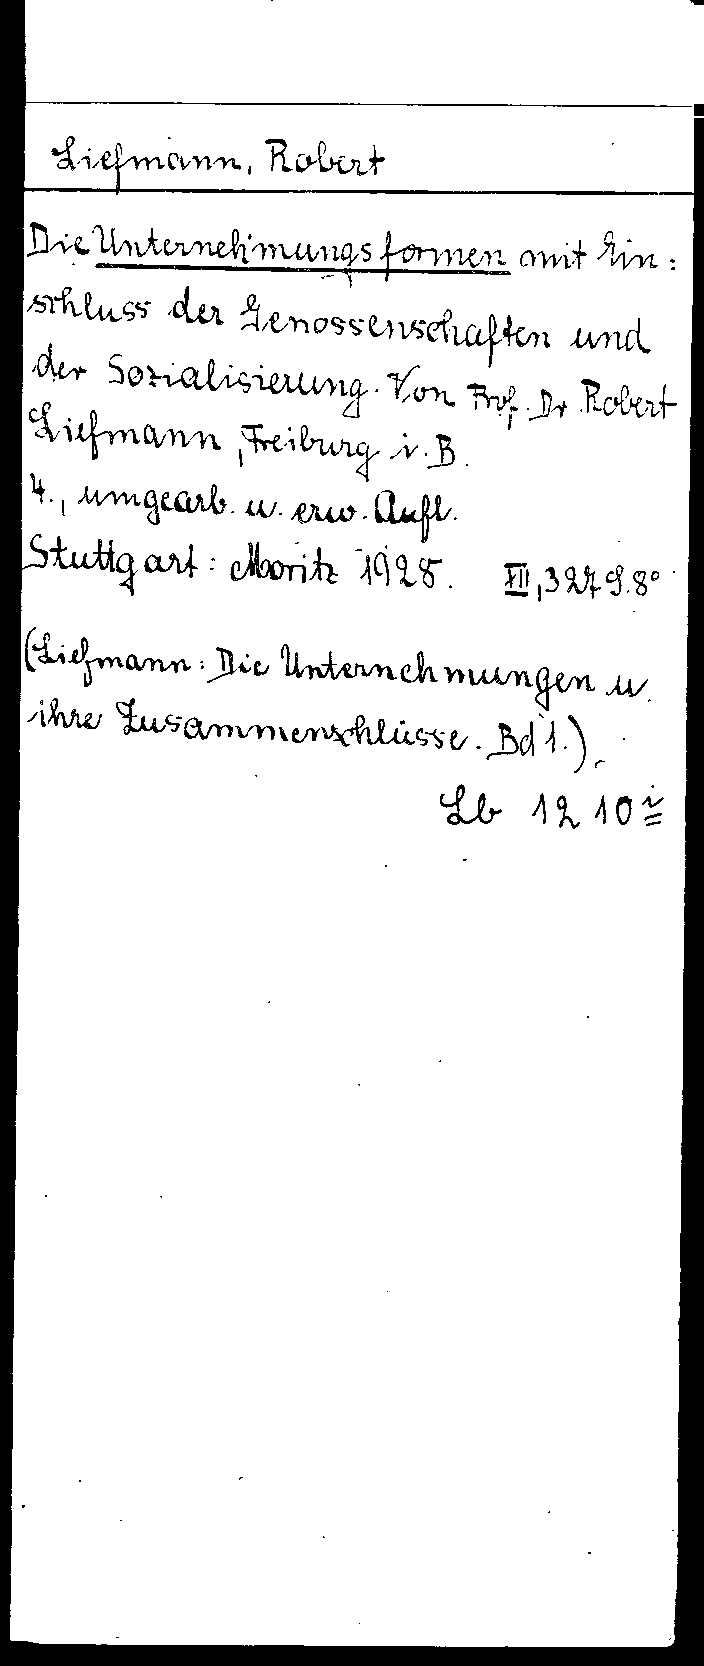 Liefmann, Robert
Die Unternehmungsformen mit Ein:
schluss der Genossenschaften und
der Sozialisierung. Von Prof. Dr. Robert
Liefmann, Freiburg i. B.
4., umgearb. u. erw. Aufl.
Stuttgart: Moritz 1928. XII, 327 S. 8°
(Liefmann: Die Unternehmungen u.
ihre Zusammenschlüsse. Bd 1.).
Lb 1210 i